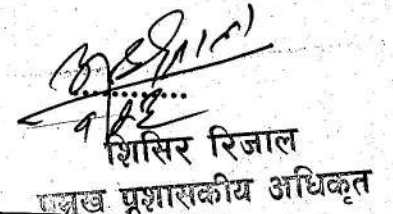 शिसिर रिजाल
प्रमुख प्रशासकीय अधिकृत